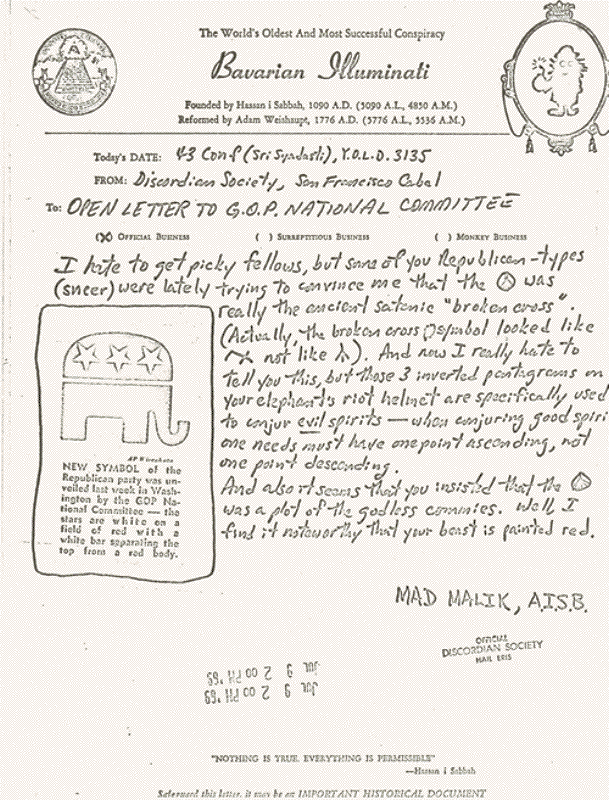 The World's Oldest And Most Successful Conspiracy
Bavarian Illuminati
Founded by Hassan i Sabbah, 1090 A.D. (5090 A.L., 4850 A.M.)
Reformed by Adam Weishaupt, 1776 A.D. (5776 A.L., 5536 A.M.)
Today's DATE: 43 Conf (Sri Syadasti), Y.O.L.D. 3135
FROM: Discordian Society, San Francisco Cabal
To: OPEN LETTER TO G.O.P. NATIONAL COMMITTEE
(X) OFFICIAL BUSINESS ( ) SURREPTITIOUS BUSINESS ( ) MONKEY BUSINESS
I hate to get picky fellows, but some of you Republican-types
(sneer) were lately trying to convince me that the was
really the ancient satanic "broken cross".
(Actually, the broken cross symbol looked like
not like ). And now I really hate to
tell you this, but those 3 inverted pentagrams on
your elephant's riot helmet are specifically used
to conjur evil spirits — when conjuring good spiri
one needs must have one point ascending, not
one point descending.
And also it seems that you insisted that the
was a plot of the godless commies. Well, I
find it noteworthy that your beast is painted red.
AP Wirephoto
NEW SYMBOL of the
Republican party was un-
veiled last week in Wash-
ington by the GOP Na-
tional Committee — the
stars are white on a
field of red with a
white bar separating the
top from a red body.
MAD MALIK, A.I.S.B.
OFFICIAL
DISCORDIAN SOCIETY
HAIL ERIS
JUL 9 2 00 PM '69
JUL 9 2 00 PM '69
"NOTHING IS TRUE. EVERYTHING IS PERMISSIBLE"
—Hassan i Sabbah
Safeguard this letter, it may be an IMPORTANT HISTORICAL DOCUMENT